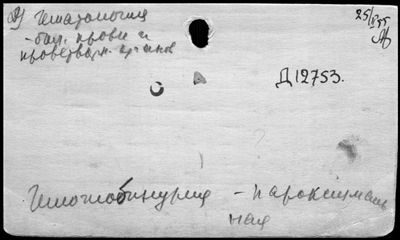 Гематология
- бол. крови и
кроветворн. органов
25/
Д 12753.
Гемоглобинурия - пароксизмаль
ная